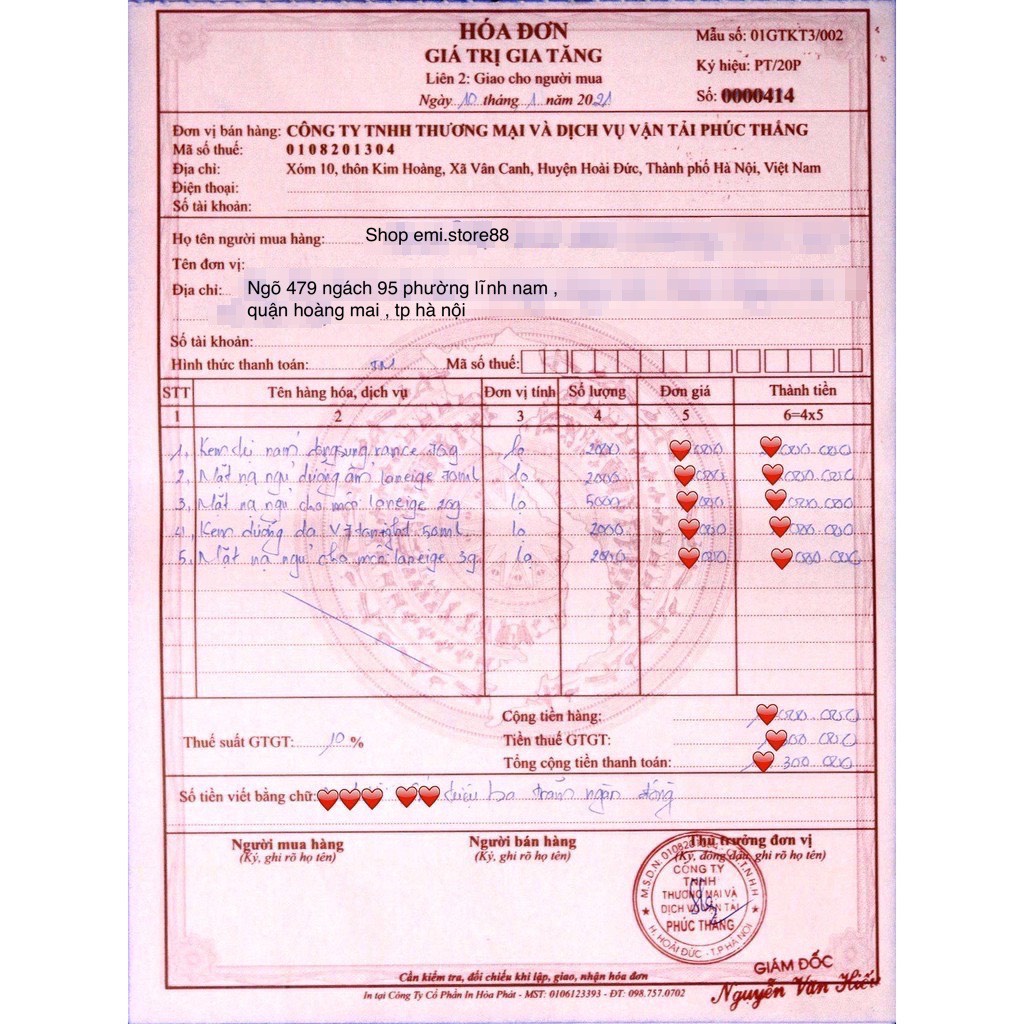 HÓA ĐƠN
GIÁ TRỊ GIA TĂNG
Liên 2: Giao cho người mua
Ngày 10 tháng 1 năm 2021
Mẫu số: 01GTKT3/002
Ký hiệu: PT/20P
Số: 0000414
Đơn vị bán hàng: CÔNG TY TNHH THƯƠNG MẠI VÀ DỊCH VỤ VẬN TẢI PHÚC THẮNG
Mã số thuế: 0108201304
Địa chỉ: Xóm 10, thôn Kim Hoàng, Xã Vân Canh, Huyện Hoài Đức, Thành phố Hà Nội, Việt Nam
Điện thoại:
Số tài khoản:
Họ tên người mua hàng: Shop emi.store88
Tên đơn vị:
Địa chỉ: Ngõ 479 ngách 95 phường lĩnh nam ,
quận hoàng mai , tp hà nội
Số tài khoản:
Hình thức thanh toán: TM Mã số thuế:
STT Tên hàng hóa, dịch vụ Đơn vị tính Số lượng Đơn giá Thành tiền
1 2 3 4 5 6=4x5
1. Kem dị nám dongsung rance 10g lọ 2000 ❤000 ❤000.000
2. Mặt nạ ngủ dưỡng ẩm laneige 70ml lọ 2000 ❤000 ❤000.000
3. Mặt nạ ngủ cho môi laneige 20g lọ 5000 ❤000 ❤000.000
4. Kem dưỡng da V7 50ml lọ 2000 ❤000 ❤000.000
5. Mặt nạ ngủ cho môi laneige 3g lọ 2000 ❤000 ❤000.000
Cộng tiền hàng: ❤000.000
Thuế suất GTGT: 10 % Tiền thuế GTGT: ❤00.000
Tổng cộng tiền thanh toán: ❤300.000
Số tiền viết bằng chữ: ❤❤❤ ❤❤ triệu ba trăm ngàn đồng
Người mua hàng Người bán hàng Thủ trưởng đơn vị
(Ký, ghi rõ họ tên) (Ký, ghi rõ họ tên) (Ký, đóng dấu, ghi rõ họ tên)
CÔNG TY
TNHH
THƯƠNG MẠI VÀ
DỊCH VỤ VẬN TẢI
PHÚC THẮNG
H. HOÀI ĐỨC - T.P HÀ NỘI
GIÁM ĐỐC
Nguyễn Văn Hiếu
Cần kiểm tra, đối chiếu khi lập, giao, nhận hóa đơn
In tại Công Ty Cổ Phần In Hòa Phát - MST: 0106123393 - ĐT: 098.757.0702